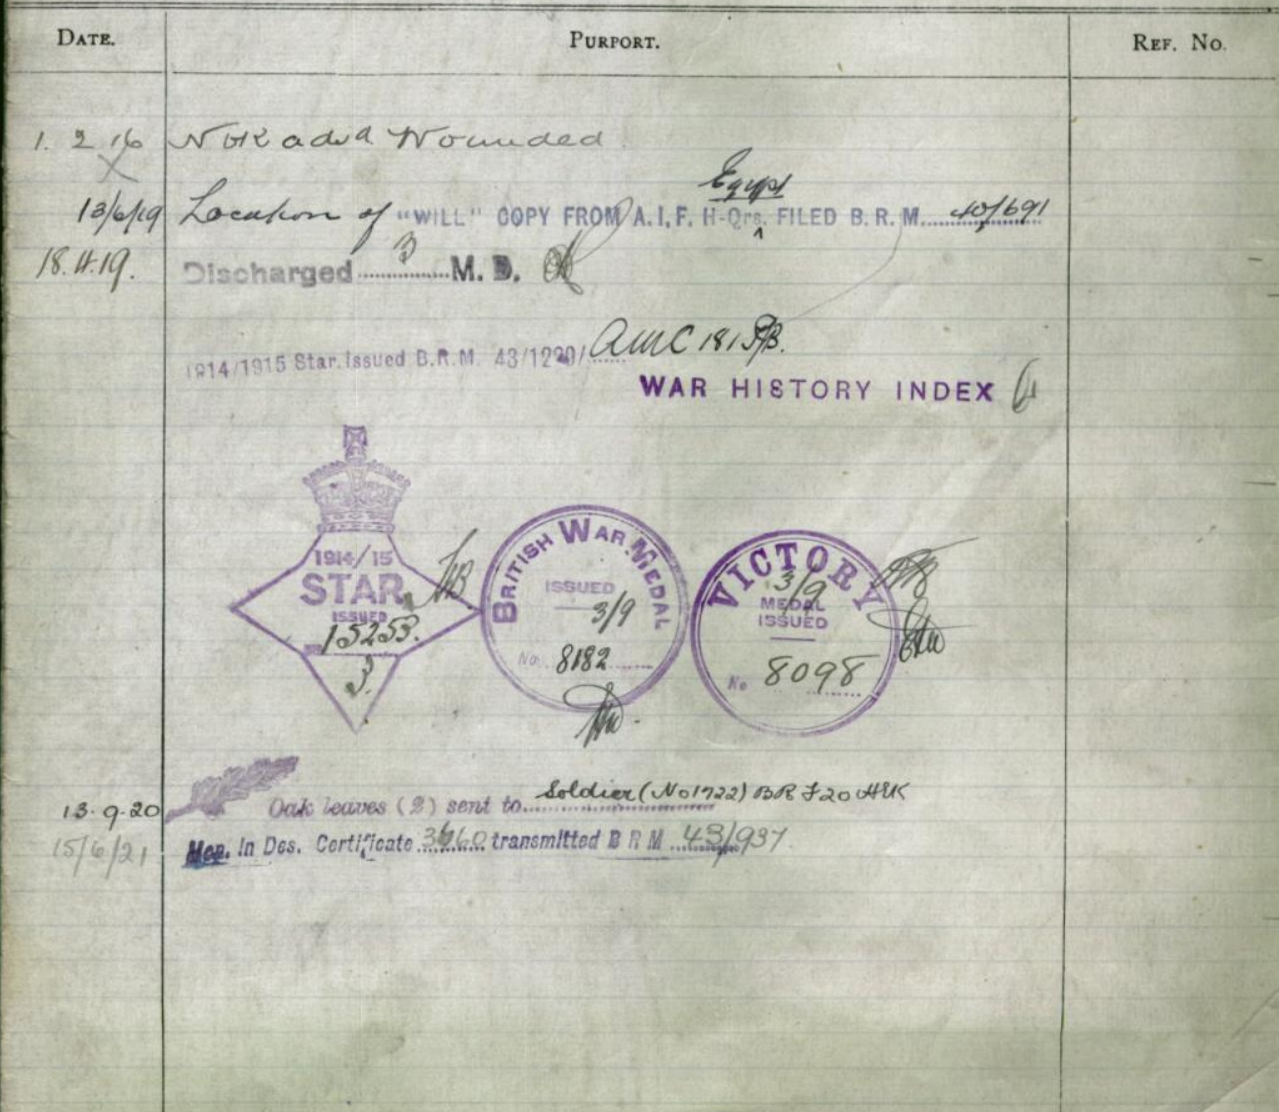 DATE. PURPORT. REF. No.
1. 2 16 NOK advd Wounded
Egypt
13/6/19 Location of "WILL" COPY FROM A.I.F. H-Qrs. FILED B.R.M. 40/691
18.4.19. Discharged 3 M.D.
1914/1915 Star. issued B.R.M. 43/1290/ AMC 181
WAR HISTORY INDEX
1914/15
STAR
ISSUED
No 15253.
3.
BRITISH WAR MEDAL
ISSUED
3/9
No. 8182
VICTORY
3/9
MEDAL
ISSUED
No 8098
13.9.20 Oak leaves (2) sent to Soldier (No1722) BR F20
15/6/21 Men. in Des. Certificate 3660 transmitted B R M 43/937